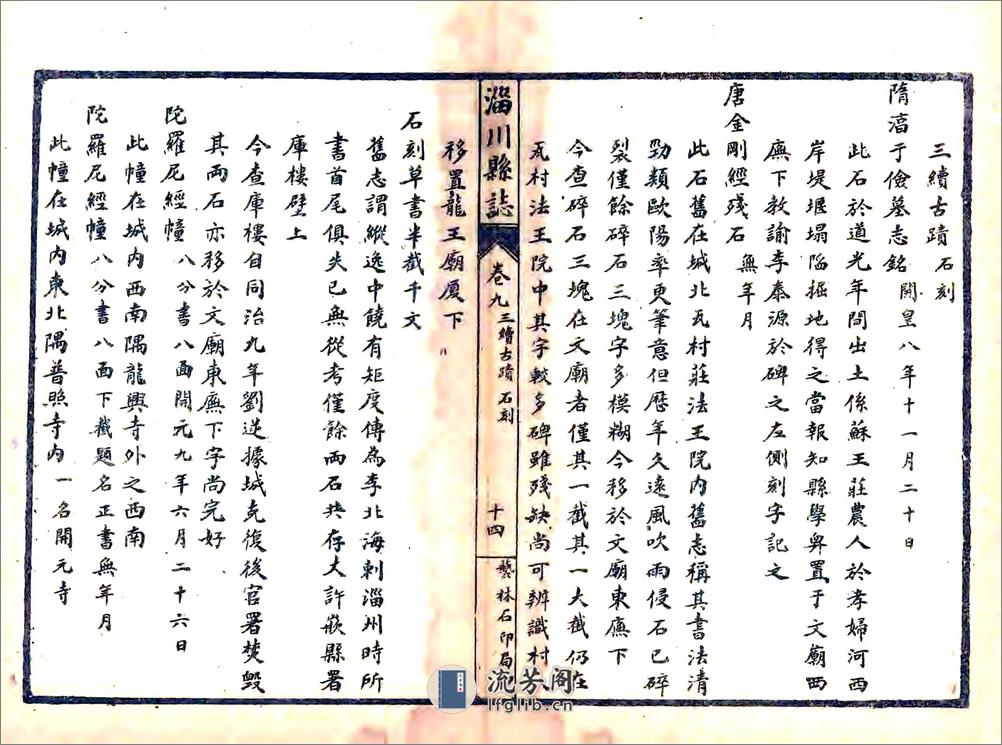 三續古蹟 石刻
隋淳于儉墓志銘 開皇八年十一月二十日
此石於道光年間出土係蘇王莊農人於孝婦河西
岸堤堰塌陷掘地得之當報知縣學舁置于文廟西
廡下教諭李泰源於碑之左側刻字記之
唐金剛經殘石 無年月
此石舊在城北瓦村莊法王院內舊志稱其書法清
勁類歐陽率更筆意但歷年久遠風吹雨侵石已碎
裂僅餘碎石三塊字多模糊今移於文廟東廡下
今查碎石三塊在文廟者僅其一截其一大截仍在
瓦村法王院中其字較多碑雖殘缺尚可辨識村人
淄川縣誌
卷九 三續古蹟 石刻
十四
藝林石印局
移置龍王廟廈下
石刻草書半截千文
舊志謂縱逸中饒有矩度傳為李北海刺淄州時所
書首尾俱失已無從考僅餘兩石共存大許嵌縣署
庫樓壁上
今查庫樓自同治九年劉逆據城克復後官署焚毀
其兩石亦移於文廟東廡下字尚完好
陀羅尼經幢 八分書八面開元九年六月二十六日
此幢在城內西南隅龍興寺外之西南
陀羅尼經幢 八分書八面下截題名正書無年月
此幢在城內東北隅普照寺內一名開元寺
流芳阁
lfglib.cn